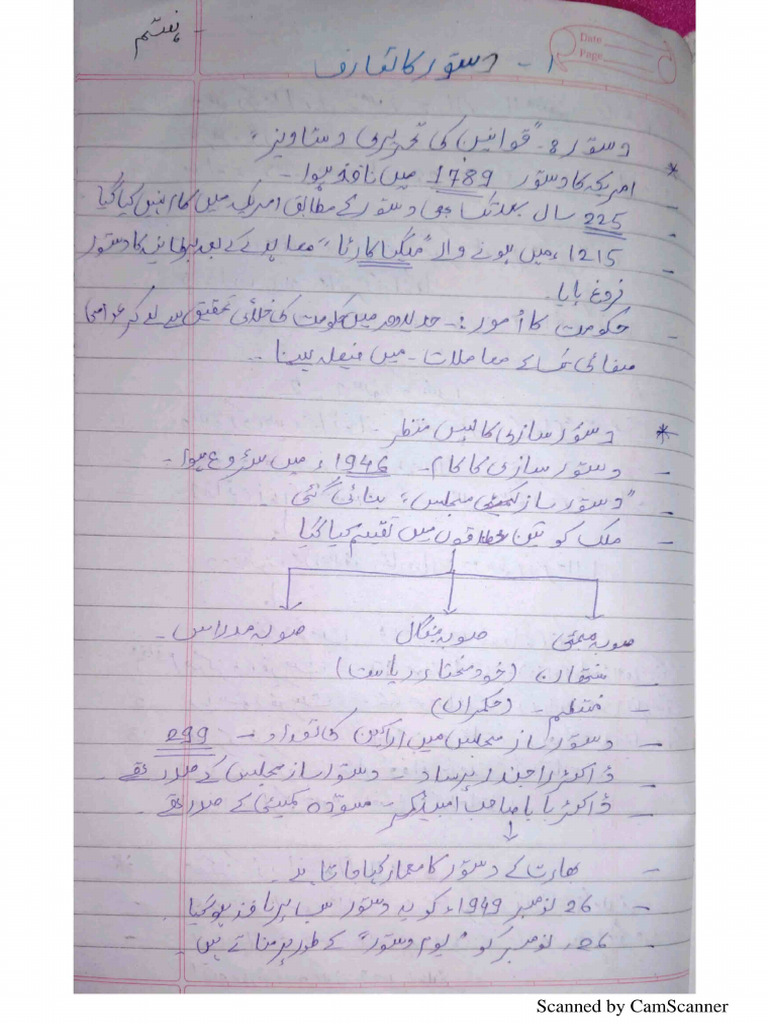 ہفتم
Date
Page
۱- دستور کا تعارف
دستور :- "قوانین کی تحریری دستاویز"
* امریکہ کا دستور 1789 میں نافذ ہوا -
- 225 سال بعد تک بھی دستور کے مطابق امریکہ میں کام نہیں کیا گیا
- 1215ء میں ہونے والے "میگنا کارٹا" معاہدے کے بعد برطانیہ کا دستور
فروغ پایا -
- حکومت کا امور :- جدید دور میں حکومت کی خلائی تحقیق سے لے کر عوامی
صفائی کے معاملات - میں فیصلہ لینا ..
* دستور سازی کا پس منظر
- دستور سازی کا کام 1946ء میں شروع ہوا -
- "دستور ساز مجلس" بنائی گئی
- ملک کو تین علاقوں میں تقسیم کیا گیا
صوبہ ممبئی صوبہ بنگال صوبہ مدراس -
- (خود مختار ریاست)
- منتظم - (حکمران)
- دستور ساز مجلس میں اراکین کی تعداد - 299
- ڈاکٹر راجندر پرساد - دستور ساز مجلس کے صدر تھے -
- ڈاکٹر بابا صاحب امبیڈکر - مسودہ کمیٹی کے صدر تھے -
- بھارت کے دستور کا معمار کہا جاتا ہے
- 26 نومبر 1949ء کو یہ دستور سب پر نافذ ہو گیا
- 26، نومبر کو "یوم دستور" کے طور پر مناتے ہیں
Scanned by CamScanner